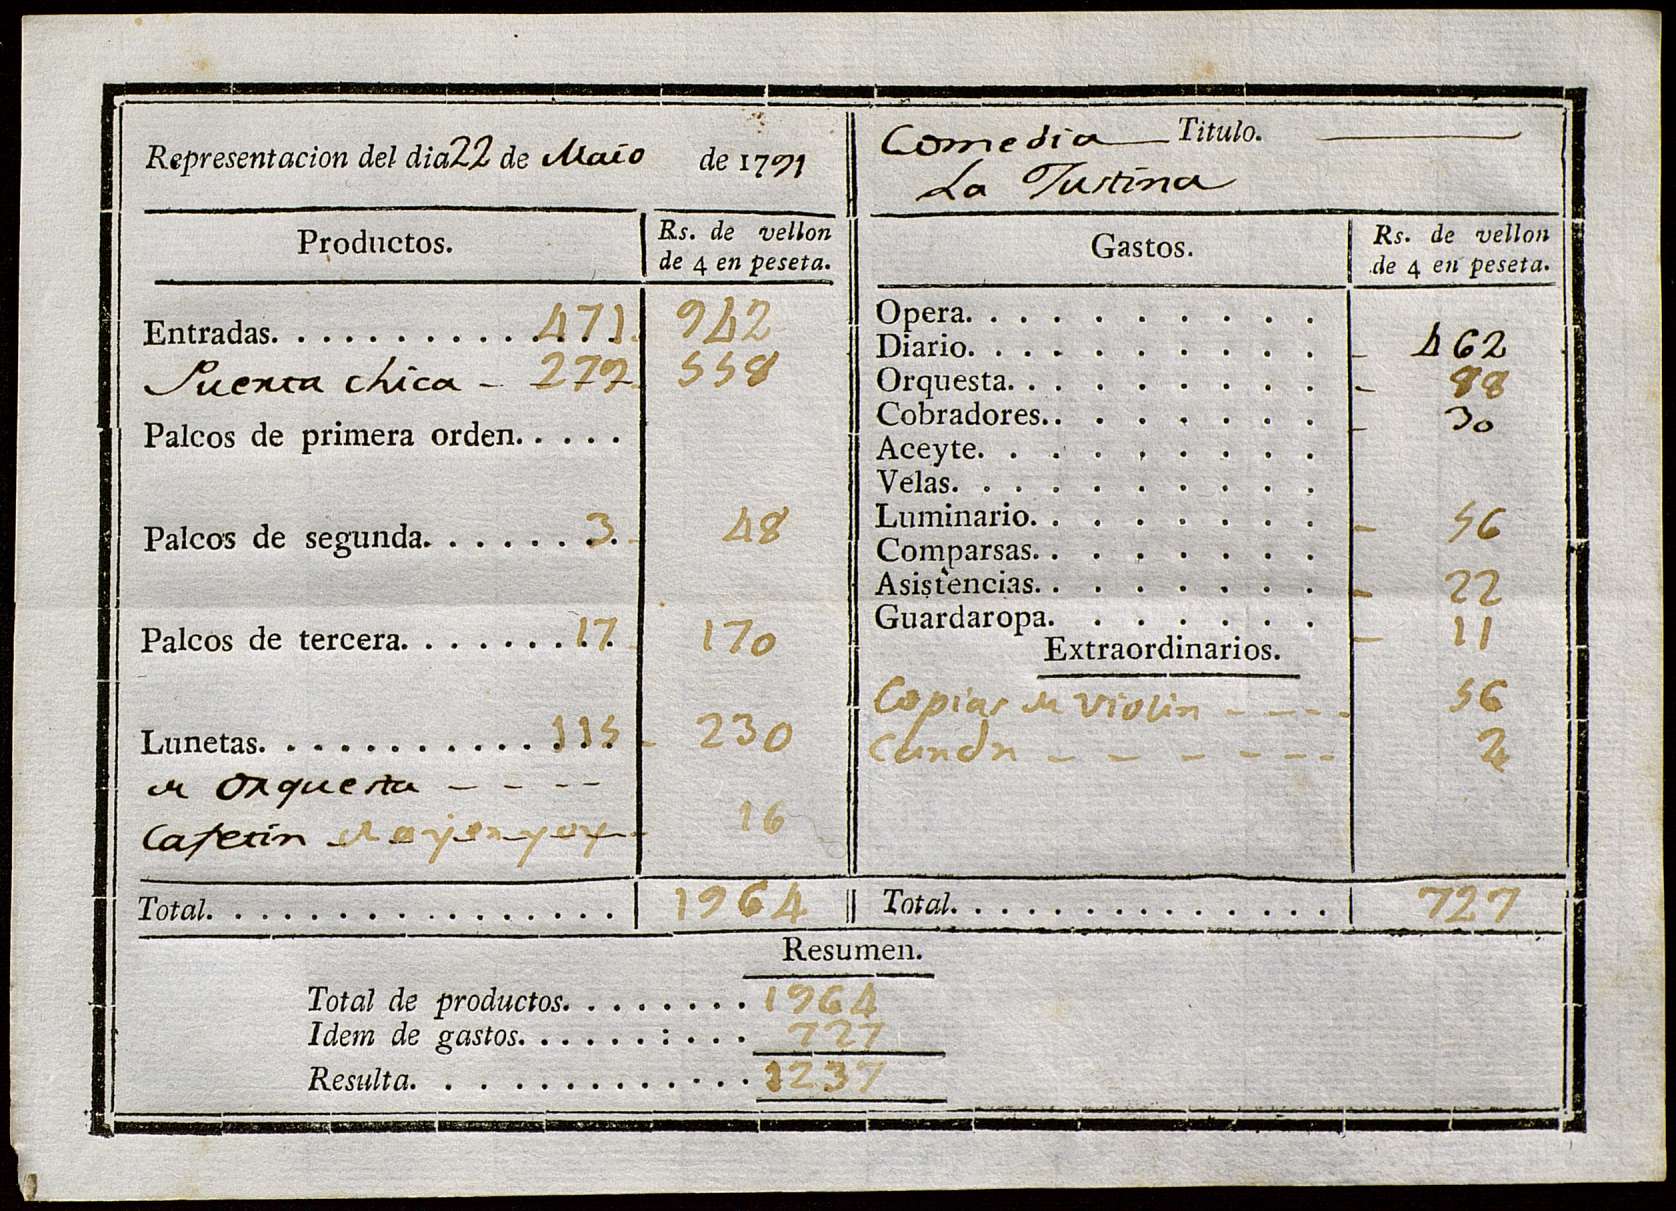 Representacion del dia 22 de Maio de 1791
Comedia Titulo.
La Justina
Productos. Rs. de vellon
de 4 en peseta.
Entradas. 471. 942
Puerta chica - 279. 558
Palcos de primera orden.
Palcos de segunda. 3. 48
Palcos de tercera. 17. 170
Lunetas. 115 - 230
de Orquesta - - - -
Cafetin 16
Total. 1964
Gastos. Rs. de vellon
de 4 en peseta.
Opera.
Diario. - 462
Orquesta. - 88
Cobradores. - 30
Aceyte.
Velas.
Luminario. - 56
Comparsas.
Asistencias. - 22
Guardaropa. - 11
Extraordinarios.
Copias de violin - - - - 56
2
Total. 727
Resumen.
Total de productos. 1964
Idem de gastos. 727
Resulta. 1237